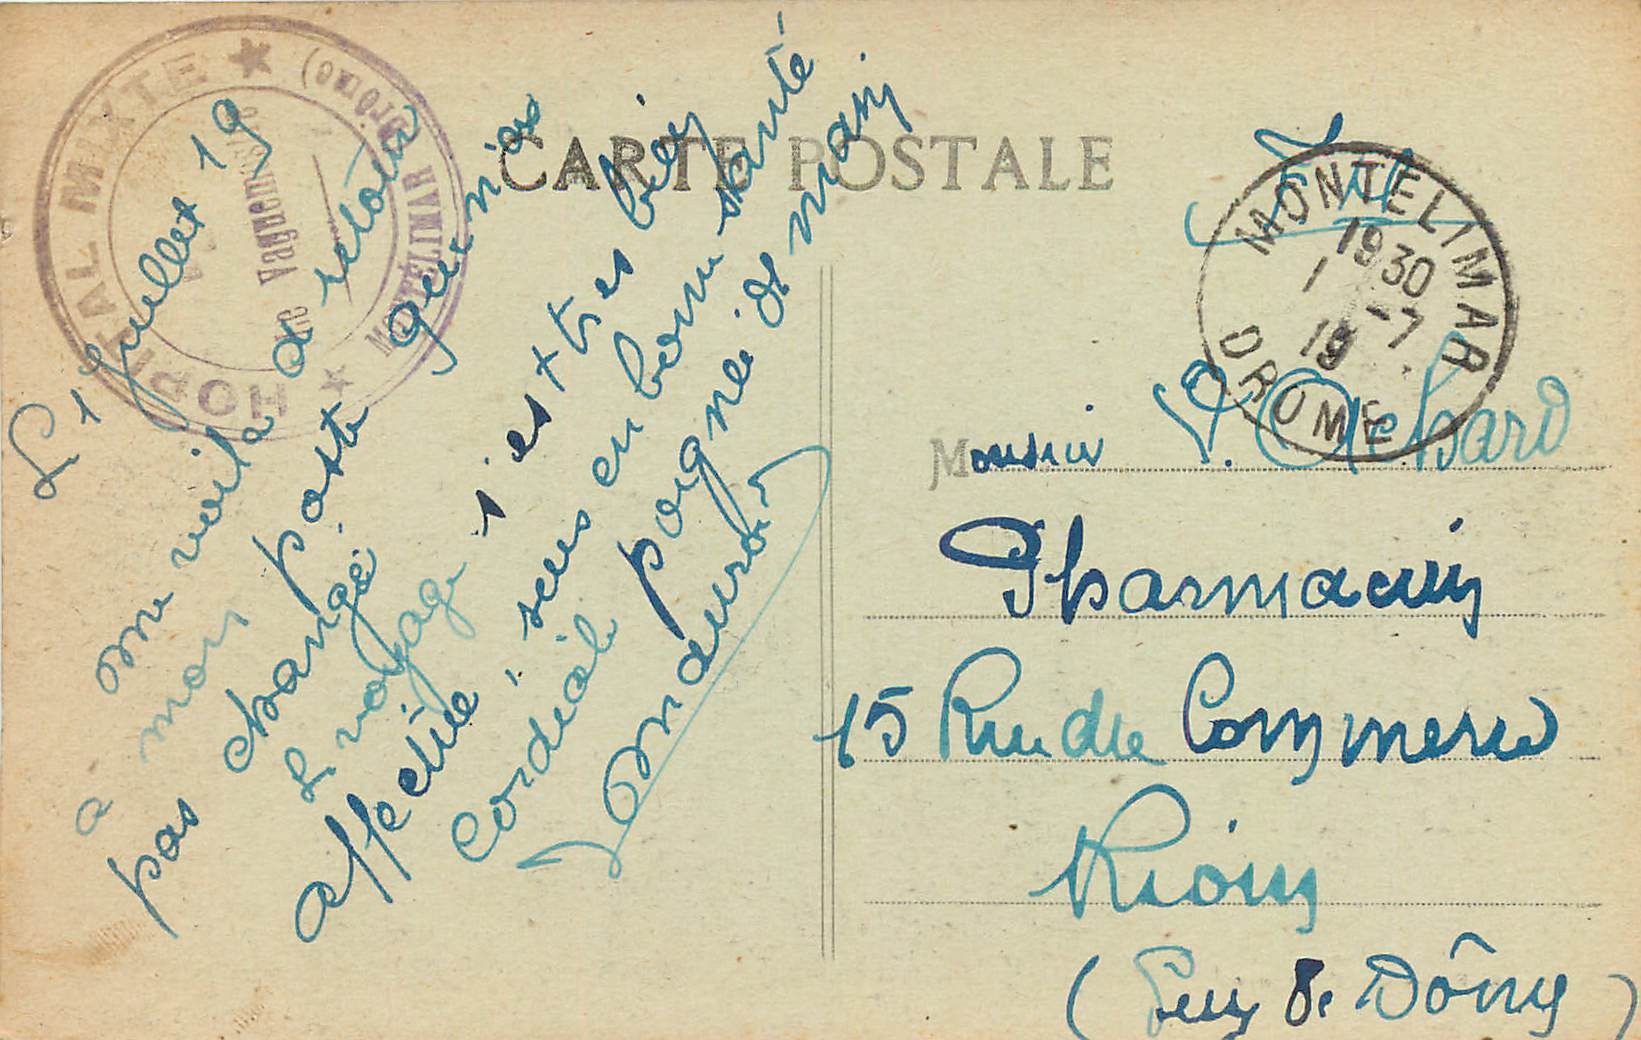 CARTE POSTALE
HOPITAL MIXTE ★ MONTÉLIMAR (Drôme) ★
Le Vaguemestre
MONTELIMAR
1930
1 -7
19
DROME
Le 1 Juillet 19
Me voila de retour
à mon poste qui n'as
pas changé
Le voyage s'est très bien
affectué, suis en bonne santé
Cordiale poignée de main
F.M.
Monsieur P.
Pharmacien
15 Rue du Commerce
Riom
(Puy de Dôme)